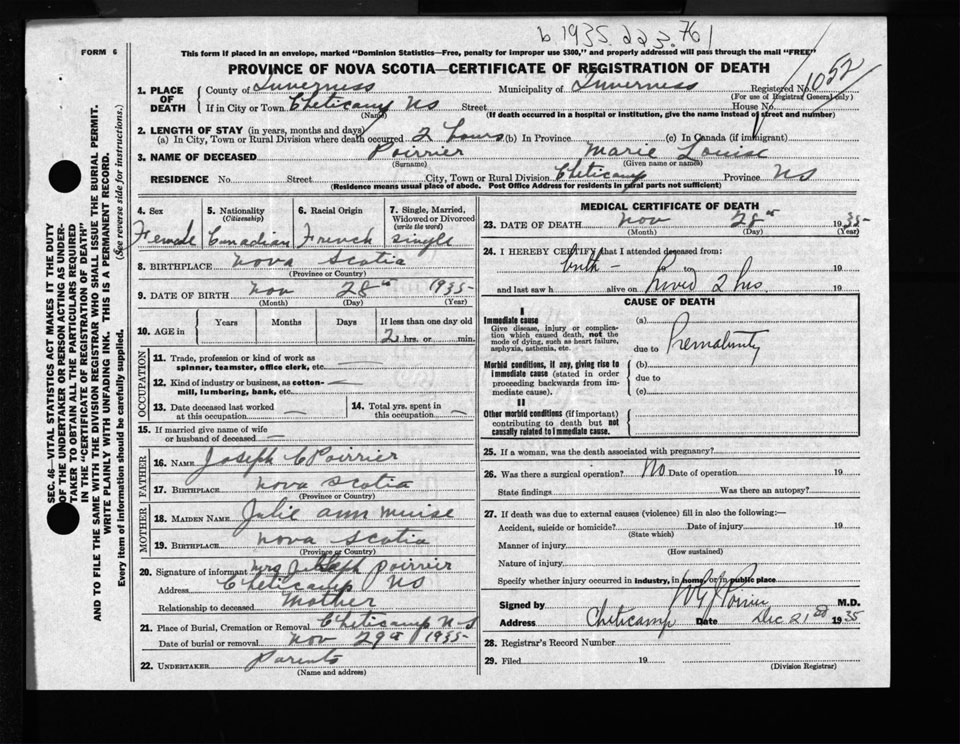 b 1935 223.761
FORM 6
This form if placed in an envelope, marked "Dominion Statistics—Free, penalty for improper use $300," and properly addressed will pass through the mail "FREE"
PROVINCE OF NOVA SCOTIA—CERTIFICATE OF REGISTRATION OF DEATH
1. PLACE OF DEATH
County of Inverness Municipality of Inverness Registered No. 1052
(For use of Registrar General only)
If in City or Town Cheticamp NS Street House No.
(Name) (If death occurred in a hospital or institution, give the name instead of street and number)
2. LENGTH OF STAY (in years, months and days)
(a) In City, Town or Rural Division where death occurred 2 hours (b) In Province (c) In Canada (if immigrant)
3. NAME OF DECEASED Poirrier Marie Louise
(Surname) (Given name or names)
RESIDENCE No. Street City, Town or Rural Division Cheticamp Province NS
(Residence means usual place of abode. Post Office Address for residents in rural parts not sufficient)
SEC. 46—VITAL STATISTICS ACT MAKES IT THE DUTY
OF THE UNDERTAKER OR PERSON ACTING AS UNDER-
TAKER TO OBTAIN ALL THE PARTICULARS REQUIRED
IN THE "CERTIFICATE OF REGISTRATION OF DEATH"
AND TO FILE THE SAME WITH THE DIVISION REGISTRAR WHO SHALL ISSUE THE BURIAL PERMIT.
WRITE PLAINLY WITH UNFADING INK. THIS IS A PERMANENT RECORD.
Every item of information should be carefully supplied. (See reverse side for instructions.)
4. Sex Female
5. Nationality (Citizenship) Canadian
6. Racial Origin French
7. Single, Married, Widowed or Divorced (write the word) single
8. BIRTHPLACE Nova Scotia
(Province or Country)
9. DATE OF BIRTH Nov 28th 1935
(Month) (Day) (Year)
10. AGE in Years Months Days If less than one day old
2 hrs. or min.
OCCUPATION
11. Trade, profession or kind of work as
spinner, teamster, office clerk, etc. —
12. Kind of industry or business, as cotton-
mill, lumbering, bank, etc. —
13. Date deceased last worked
at this occupation —
14. Total yrs. spent in
this occupation —
15. If married give name of wife
or husband of deceased —
FATHER
16. NAME Joseph C Poirrier
17. BIRTHPLACE Nova Scotia
(Province or Country)
MOTHER
18. MAIDEN NAME Julie Ann Muise
19. BIRTHPLACE Nova Scotia
(Province or Country)
20. Signature of informant Mrs Joseph Poirrier
Address Cheticamp NS
Relationship to deceased Mother
21. Place of Burial, Cremation or Removal Cheticamp N-S
Date of burial or removal Nov 29th 1935
22. UNDERTAKER Parents
(Name and address)
MEDICAL CERTIFICATE OF DEATH
23. DATE OF DEATH Nov 28th 1935
(Month) (Day) (Year)
24. I HEREBY CERTIFY that I attended deceased from:
birth - to 19
and last saw h alive on lived 2 hrs. 19
CAUSE OF DEATH
I
Immediate cause (a)
Give disease, injury or complica-
tion which caused death, not the
mode of dying, such as heart failure,
asphyxia, asthenia, etc.
due to Prematurity
Morbid conditions, if any, giving rise to
immediate cause (stated in order
proceeding backwards from im-
mediate cause).
(b)
due to
(c)
II
Other morbid conditions (if important)
contributing to death but not
causally related to immediate cause.
25. If a woman, was the death associated with pregnancy?
26. Was there a surgical operation? No Date of operation 19
State findings Was there an autopsy?
27. If death was due to external causes (violence) fill in also the following:—
Accident, suicide or homicide? Date of injury 19
(State which)
Manner of injury
(How sustained)
Nature of injury
Specify whether injury occurred in industry, in home, or in public place
Signed by M.D.
Address Cheticamp Date Dec 21st 1935
28. Registrar's Record Number
29. Filed 19
(Division Registrar)